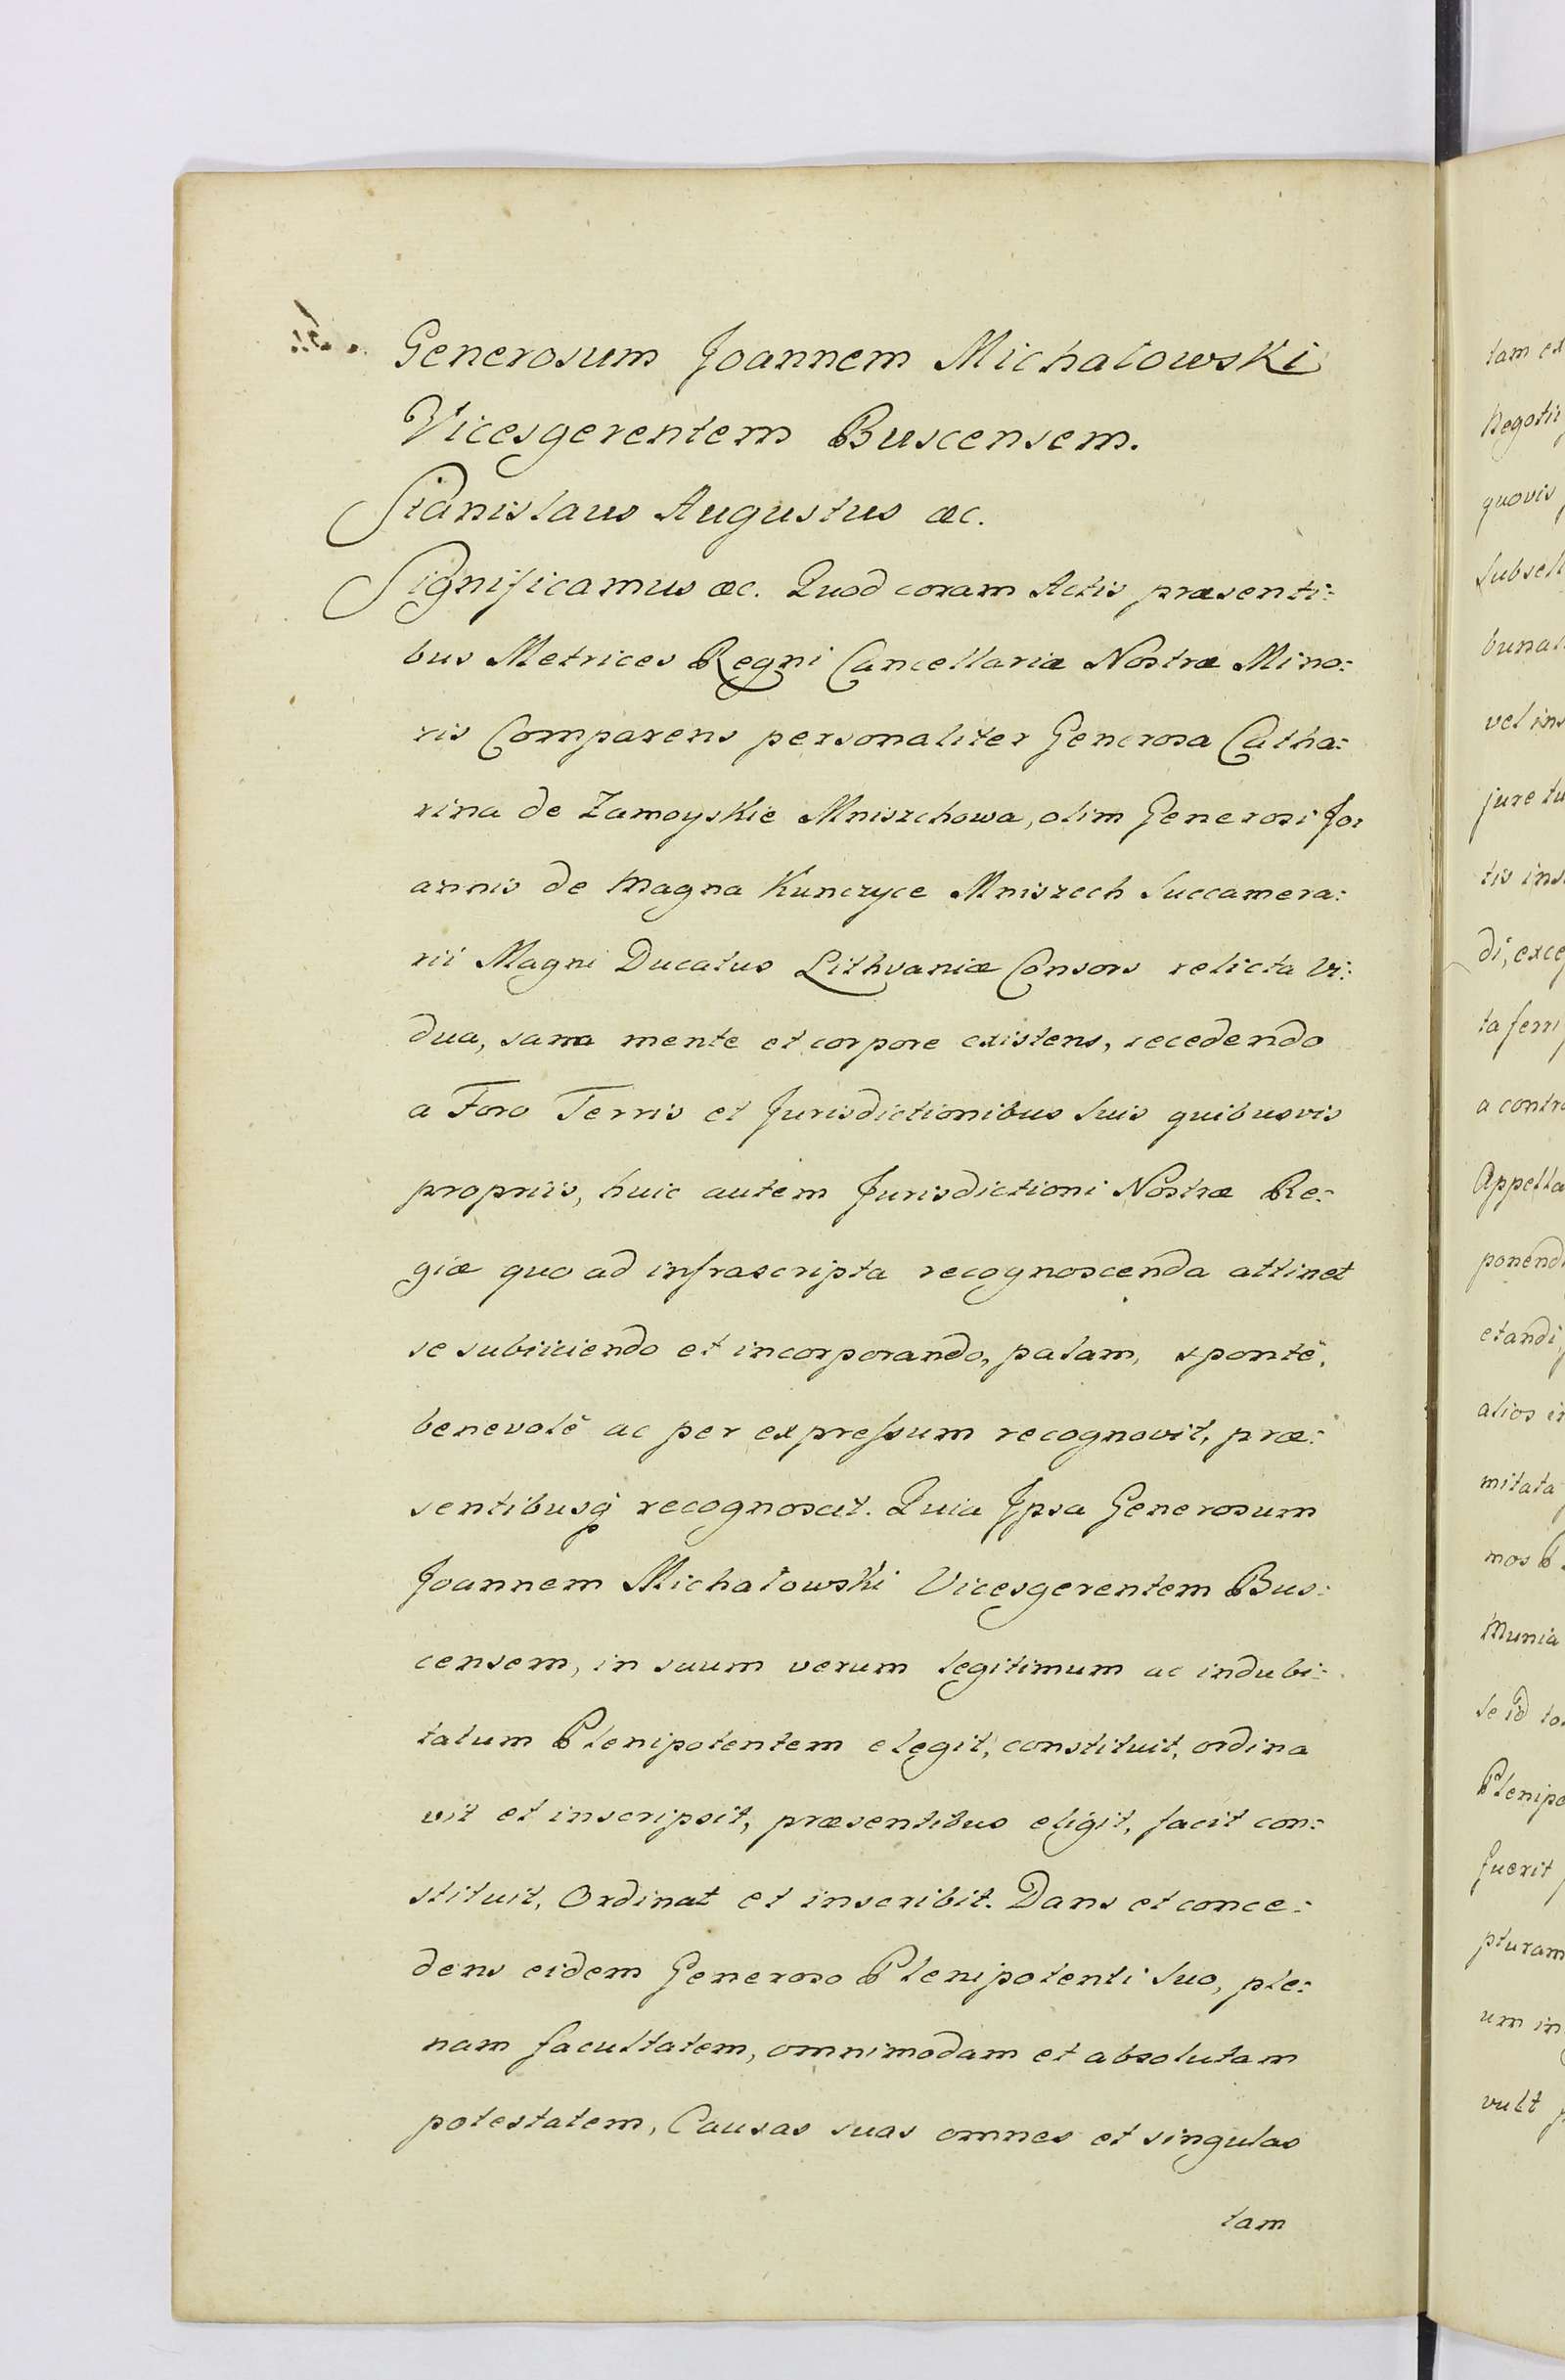 Generosum Joannem Michałowski
Vicesgerentem Buscensem.
Stanislaus Augustus æc.
Significamus æc. Quod coram Actis præsenti:
bus Metrices Regni Cancellariæ Nostræ Mino:
ris Comparens personaliter Generosa Catha:
rina de Zamoyskie Mniszchowa, olim Generosi Jo:
annis de Magna Kunczyce Mniszech Succamera:
rii Magni Ducatus Lithvaniæ Consors relicta Vi:
dua, sana mente et corpore existens, recedendo
a Foro Terris et Jurisdictionibus suis quibusvis
propriis, huic autem Jurisdictioni Nostræ Re:
giæ quo ad infrascripta recognoscenda attinet
se subiiciendo et incorporando, palam, spontè,
benevolè ac per expressum recognovit, præ:
sentibusq recognoscit. Quia Ipsa Generosum
Joannem Michałowski Vicesgerentem Bus:
censem, in suum verum legitimum ac indubi:
tatum Plenipotentem elegit, constituit, ordina
vit et inscripsit, præsentibus eligit, facit con:
stituit, Ordinat et inscribit. Dans et conce:
dens eidem Generoso Plenipotenti suo, ple:
nam facultatem, omnimodam et absolutam
potestatem, Causas suas omnes et singulas
tam
tam ex
Negotii
quovis
Subsell
bunal
vel ins
jure tu
tis ins
di, exce
ta ferri
a contra
Appella
ponend
etandi
alios i
mitata
mos
Munia
se id to
Plenipo
fuerit
pturam
um in
vult p